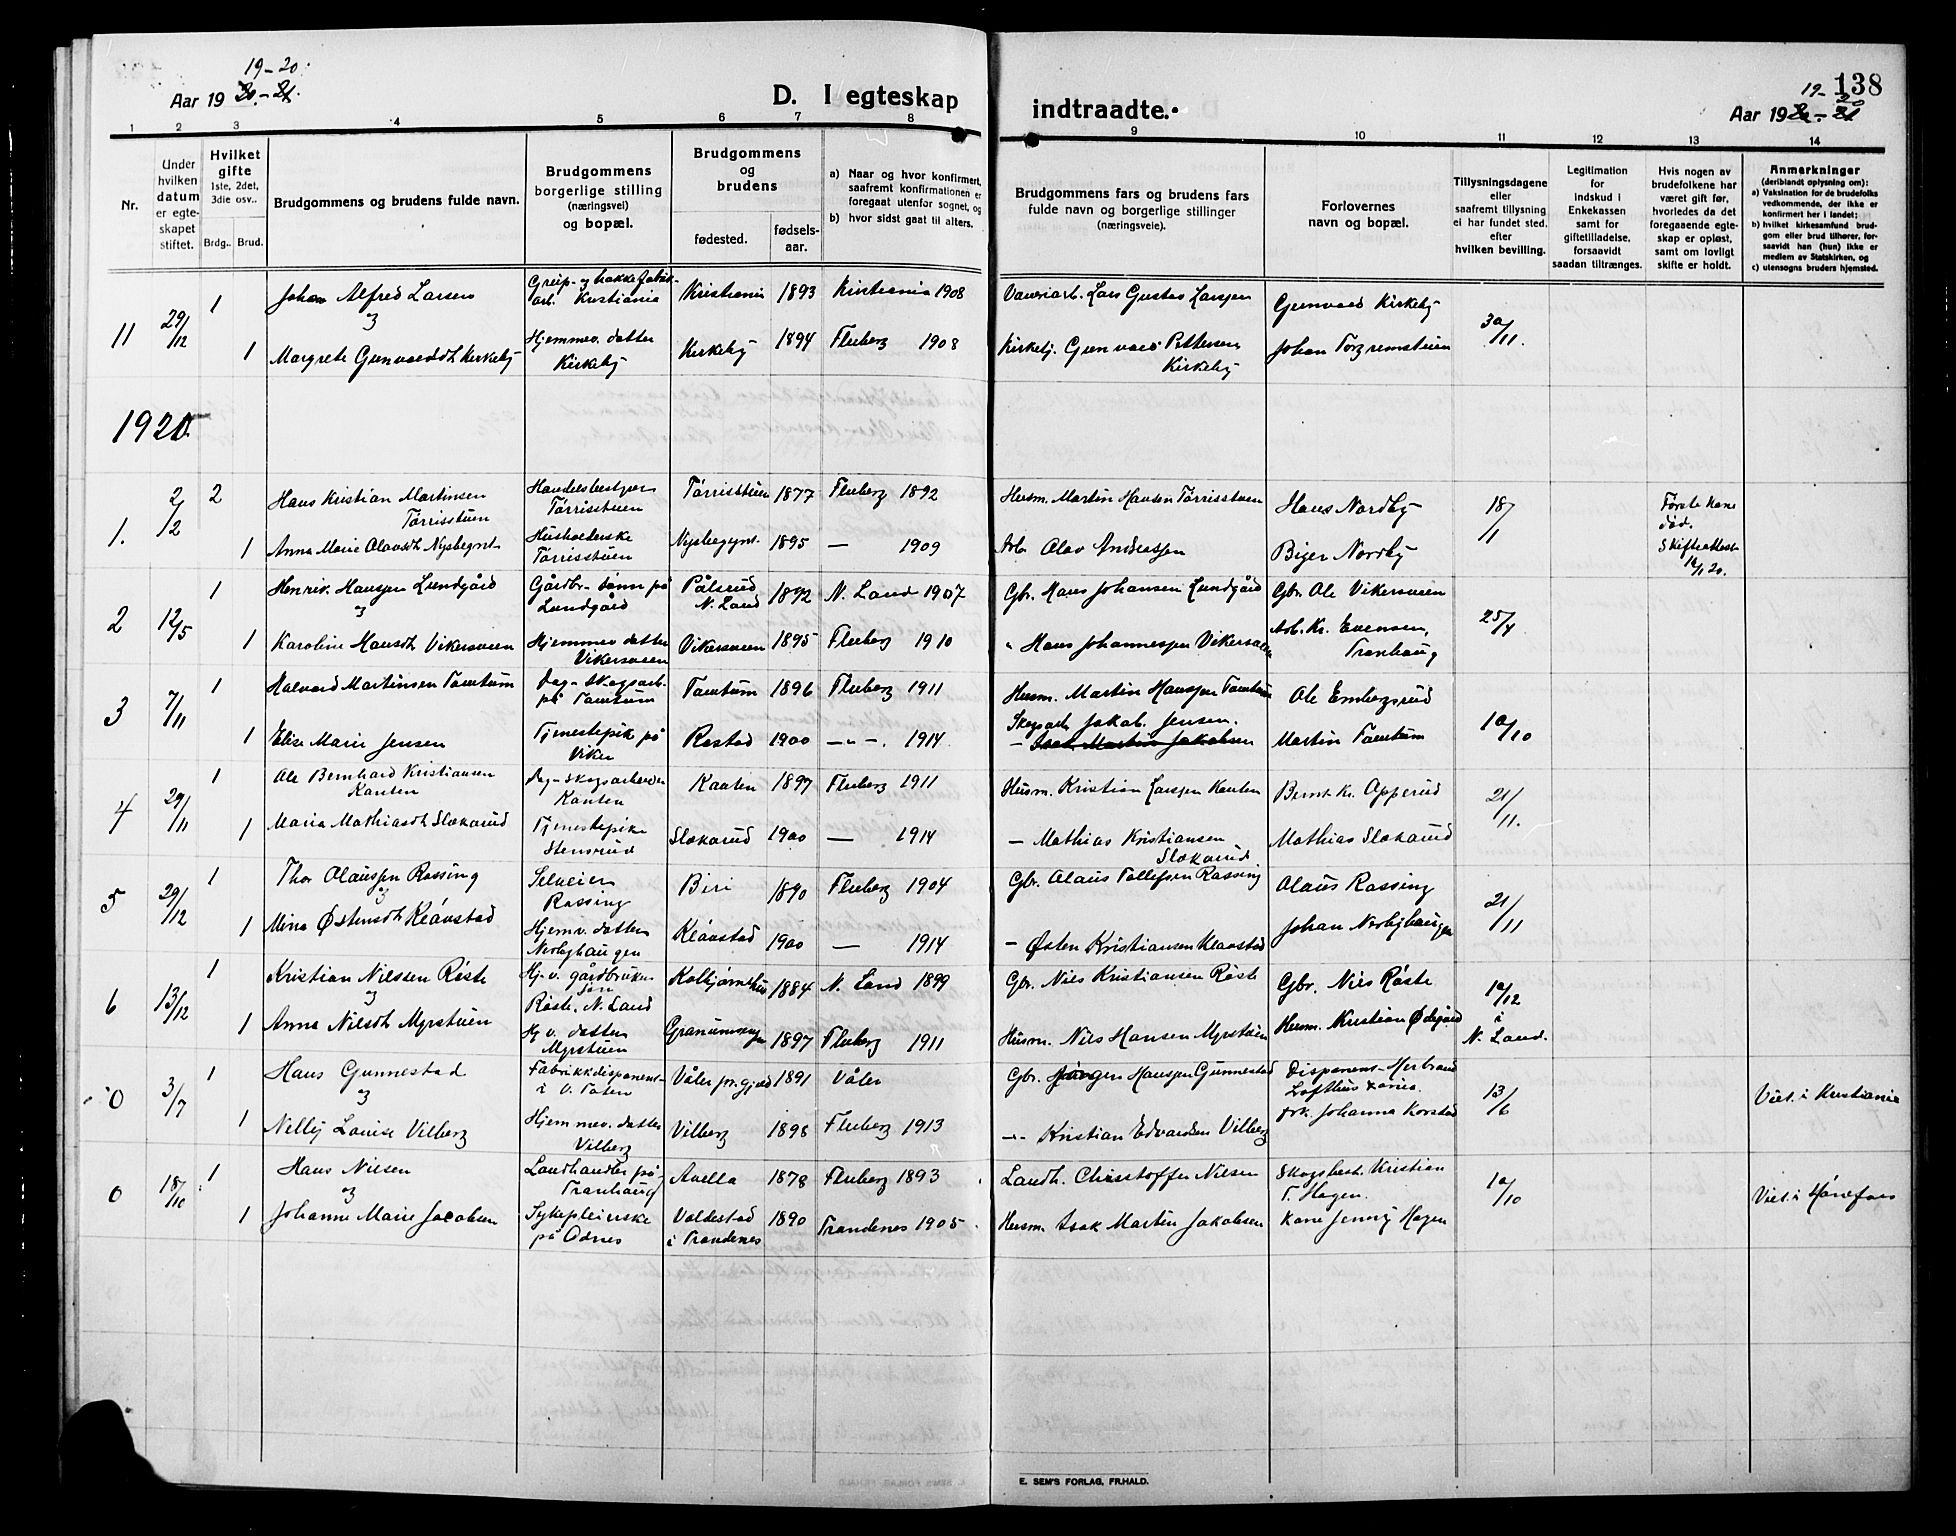 19-20.
Aar 19 20.-21.
D. I egteskap
indtraadte.
138
19-20
Aar 19 20-21
1 2 3 4 5 6 7 8
9 10 11 12 13 14
Nr.
Under hvilken datum er egte-skapet stiftet.
Hvilket gifte
1ste, 2det, 3die osv..
Brdg.. Brud.
Brudgommens og brudens fulde navn.
Brudgommens borgerlige stilling (næringsvei) og bopæl.
Brudgommens og brudens
fødested. fødsels-aar.
a) Naar og hvor konfirmert, saafremt konfirmationen er foregaat utenfor sognet, og
b) hvor sidst gaat til alters.
Brudgommens fars og brudens fars
fulde navn og borgerlige stillinger
(næringsveie).
Forlovernes
navn og bopæl.
Tillysningsdagene eller saafremt tillysning ei har fundet sted. efter hvilken bevilling.
Legitimation for Indskud i Enkekassen samt for giftetilladelse, forsaavidt saadan tiltrænges.
Hvis nogen av brudefolkene har været gift før, hvorledes da det foregaaende egte-skap er opløst, samt om lovligt skifte er holdt.
Anmerkninger
(deriblandt oplysning om):
a) Vaksination for de brudefolks vedkommende, der ikke er konfirmert her i landet;
b) hvilket kirkesamfund brud-gom eller brud tilhører, for-saavidt han (hun) ikke er medlem av Statskirken, og
c) utensogns bruders hjemsted.
11 29/12 1 Johan Alfred Larsen Kristiania Kristiania 1893 Kristiania 1908 Lars Gustav Larssen Gunvald Kirkeby 30/11.
og
1 Margrete Gunvaldsdt Kirkeby Hjemmev. datter Kirkeby Kirkeby 1894 Fluberg 1908 Kirketj. Gunvald Pettersen Kirkeby Johan
1920
1. 2/2 2 Hans Kristian Martinsen Tørrisstuen Handelsbestyrer Tørrisstuen Tørrisstuen 1877 Fluberg 1892 Husm. Martin Hansen Tørrisstuen Hans Nordby 18/1 Første kone død.
1 Anna Marie Olavsdt Nysbegynt Husholderske Tørrisstuen Nysbegynt. 1895 — 1909 Arb. Olav Andreassen Birger Nordby Skifteattest 12/1 20.
2 12/5 1 Henrik Hanssen Lundgård Gårdbr.-sønn på Lundgård Pålsrud N. Land 1892 N. Land 1907 Gbr. Hans Johansen Lundgård Gbr. Ole Vikersveen 25/4
og
1 Karoline Hansdt Vikersveen Hjemmev datter Vikersveen Vikersveen 1895 Fluberg 1910 " Hans Johannessen Vikersveen Arb. Kr. Evensen, Tranhaug
3 7/11 1 Halvard Martinsen Tomtum Dag-skogsarb. på Tomtum Tomtum 1896 Fluberg 1911 Husm. Martin Hanssen Tomtum Ole Embogsrud 10/10
1 Elise Marie Jensen Tjenestepik på Viker Rostad 1900 —"—. 1914 Skogsarb Jakob Jensen.
— Isak Martin Jakobsen Martin Tomtum
4 29/11 1 Ole Bernhard Kristiansen Kanten Dag-skogsarbeider Kanten Kanten 1897 Fluberg 1911 Husm. Kristian Larssen Kanten Bernt Kr. Apperud 21/11.
1 Maria Mathiasdt Slåkarud Tjenestepike Stensrud Slåkarud 1900 — 1914 — Mathias Kristiansen Slåkarud Mathias Slåkarud
5 29/12 1 Thor Olaussen Røssing Selveier Røssing Biri 1890 Fluberg 1904 Gbr. Olaus Tollefsen Røssing Olaus Røssing 21/11
og
1 Mina Østensdt Klåvstad Hjemv. datter Nerbyhaugen Klåvstad 1900 — 1914 — Østen Kristiansen Klåvstad Johan Nerbyhaugen
6 13/12 1 Kristian Nilssen Røste Hj.v. gårdbruker søn Røste, N. Land 1884 N. Land 1899 Gbr. Nils Kristiansen Røste Gbr. Nils Røste 10/12 i N. Land.
og
1 Anna Nilsdt Myrstuen Hj v. datter Myrstuen 1897 Fluberg 1911 Husm. Nils Hansen Myrstuen Husm. Kristian Ødegård
0 3/7 1 Hans Gunnestad Fabrikkdisponent i V. Toten Våler 1891 Våler Gbr. Jørgen Hanssen Gunnestad Disponent Herbrand Lofthus 13/6 Viet. i Kristiania
og
1 Nelly Louise Vilberg Hjemmev. datter Vilberg Vilberg 1898 Fluberg 1913 —"— Kristian Edvardsen Vilberg frk. Johanna Korstad
0 18/10 1 Hans Nilsen Landhandler på Tranhaug Avella 1878 Fluberg 1893 Landh. Christoffer Nilsen Skogsbest. Kristian T. Hagen. 10/10 Viet. i Hønefoss
og
1 Johanne Marie Jacobsen Sykepleierske på Odnes Voldestad i Trondenes 1890 Trondenes 1905 Husm. Isak Martin Jakobsen Kone Jenny Hagen
E. SEM'S FORLAG, FR.HALD.